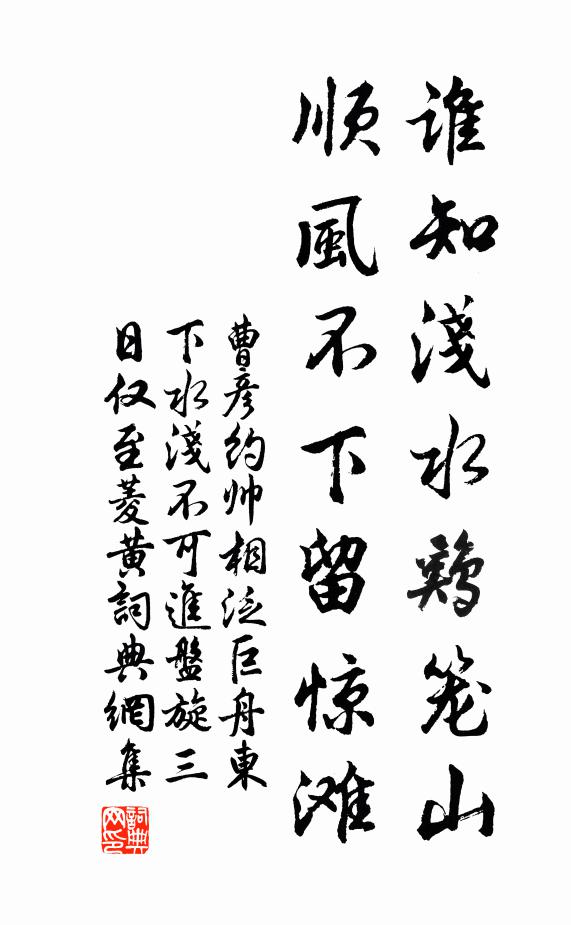 谁知淺水鷄笼山
順風不下留惊滩
曹彦约帅相泛巨舟東
下水淺不可進盤旋三
日仅至菱黄詞典網集
詞典
网印